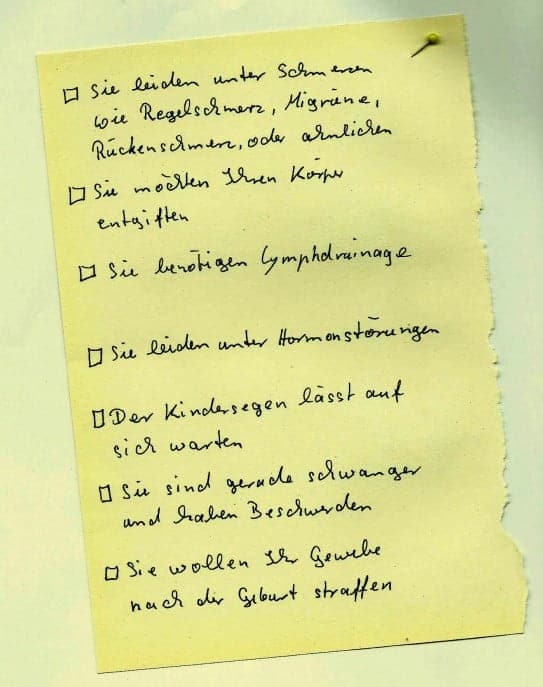 ☐ Sie leiden unter Schmerzen
wie Regelschmerz, Migräne,
Rückenschmerz, oder ähnlichen
☐ Sie möchten Ihren Körper
entgiften
☐ Sie benötigen Lymphdrainage
☐ Sie leiden unter Hormonstörungen
☐ Der Kindersegen lässt auf
sich warten
☐ Sie sind gerade schwanger
und haben Beschwerden
☐ Sie wollen Ihr Gewebe
nach der Geburt straffen